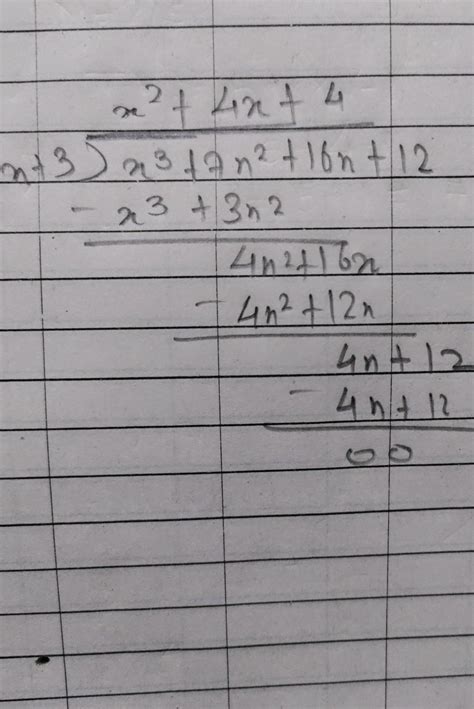 x² + 4x + 4
x+3 ) x³ + 7x² + 16x + 12
- x³ + 3x²
4x² + 16x
- 4x² + 12x
4x + 12
- 4x + 12
0 0